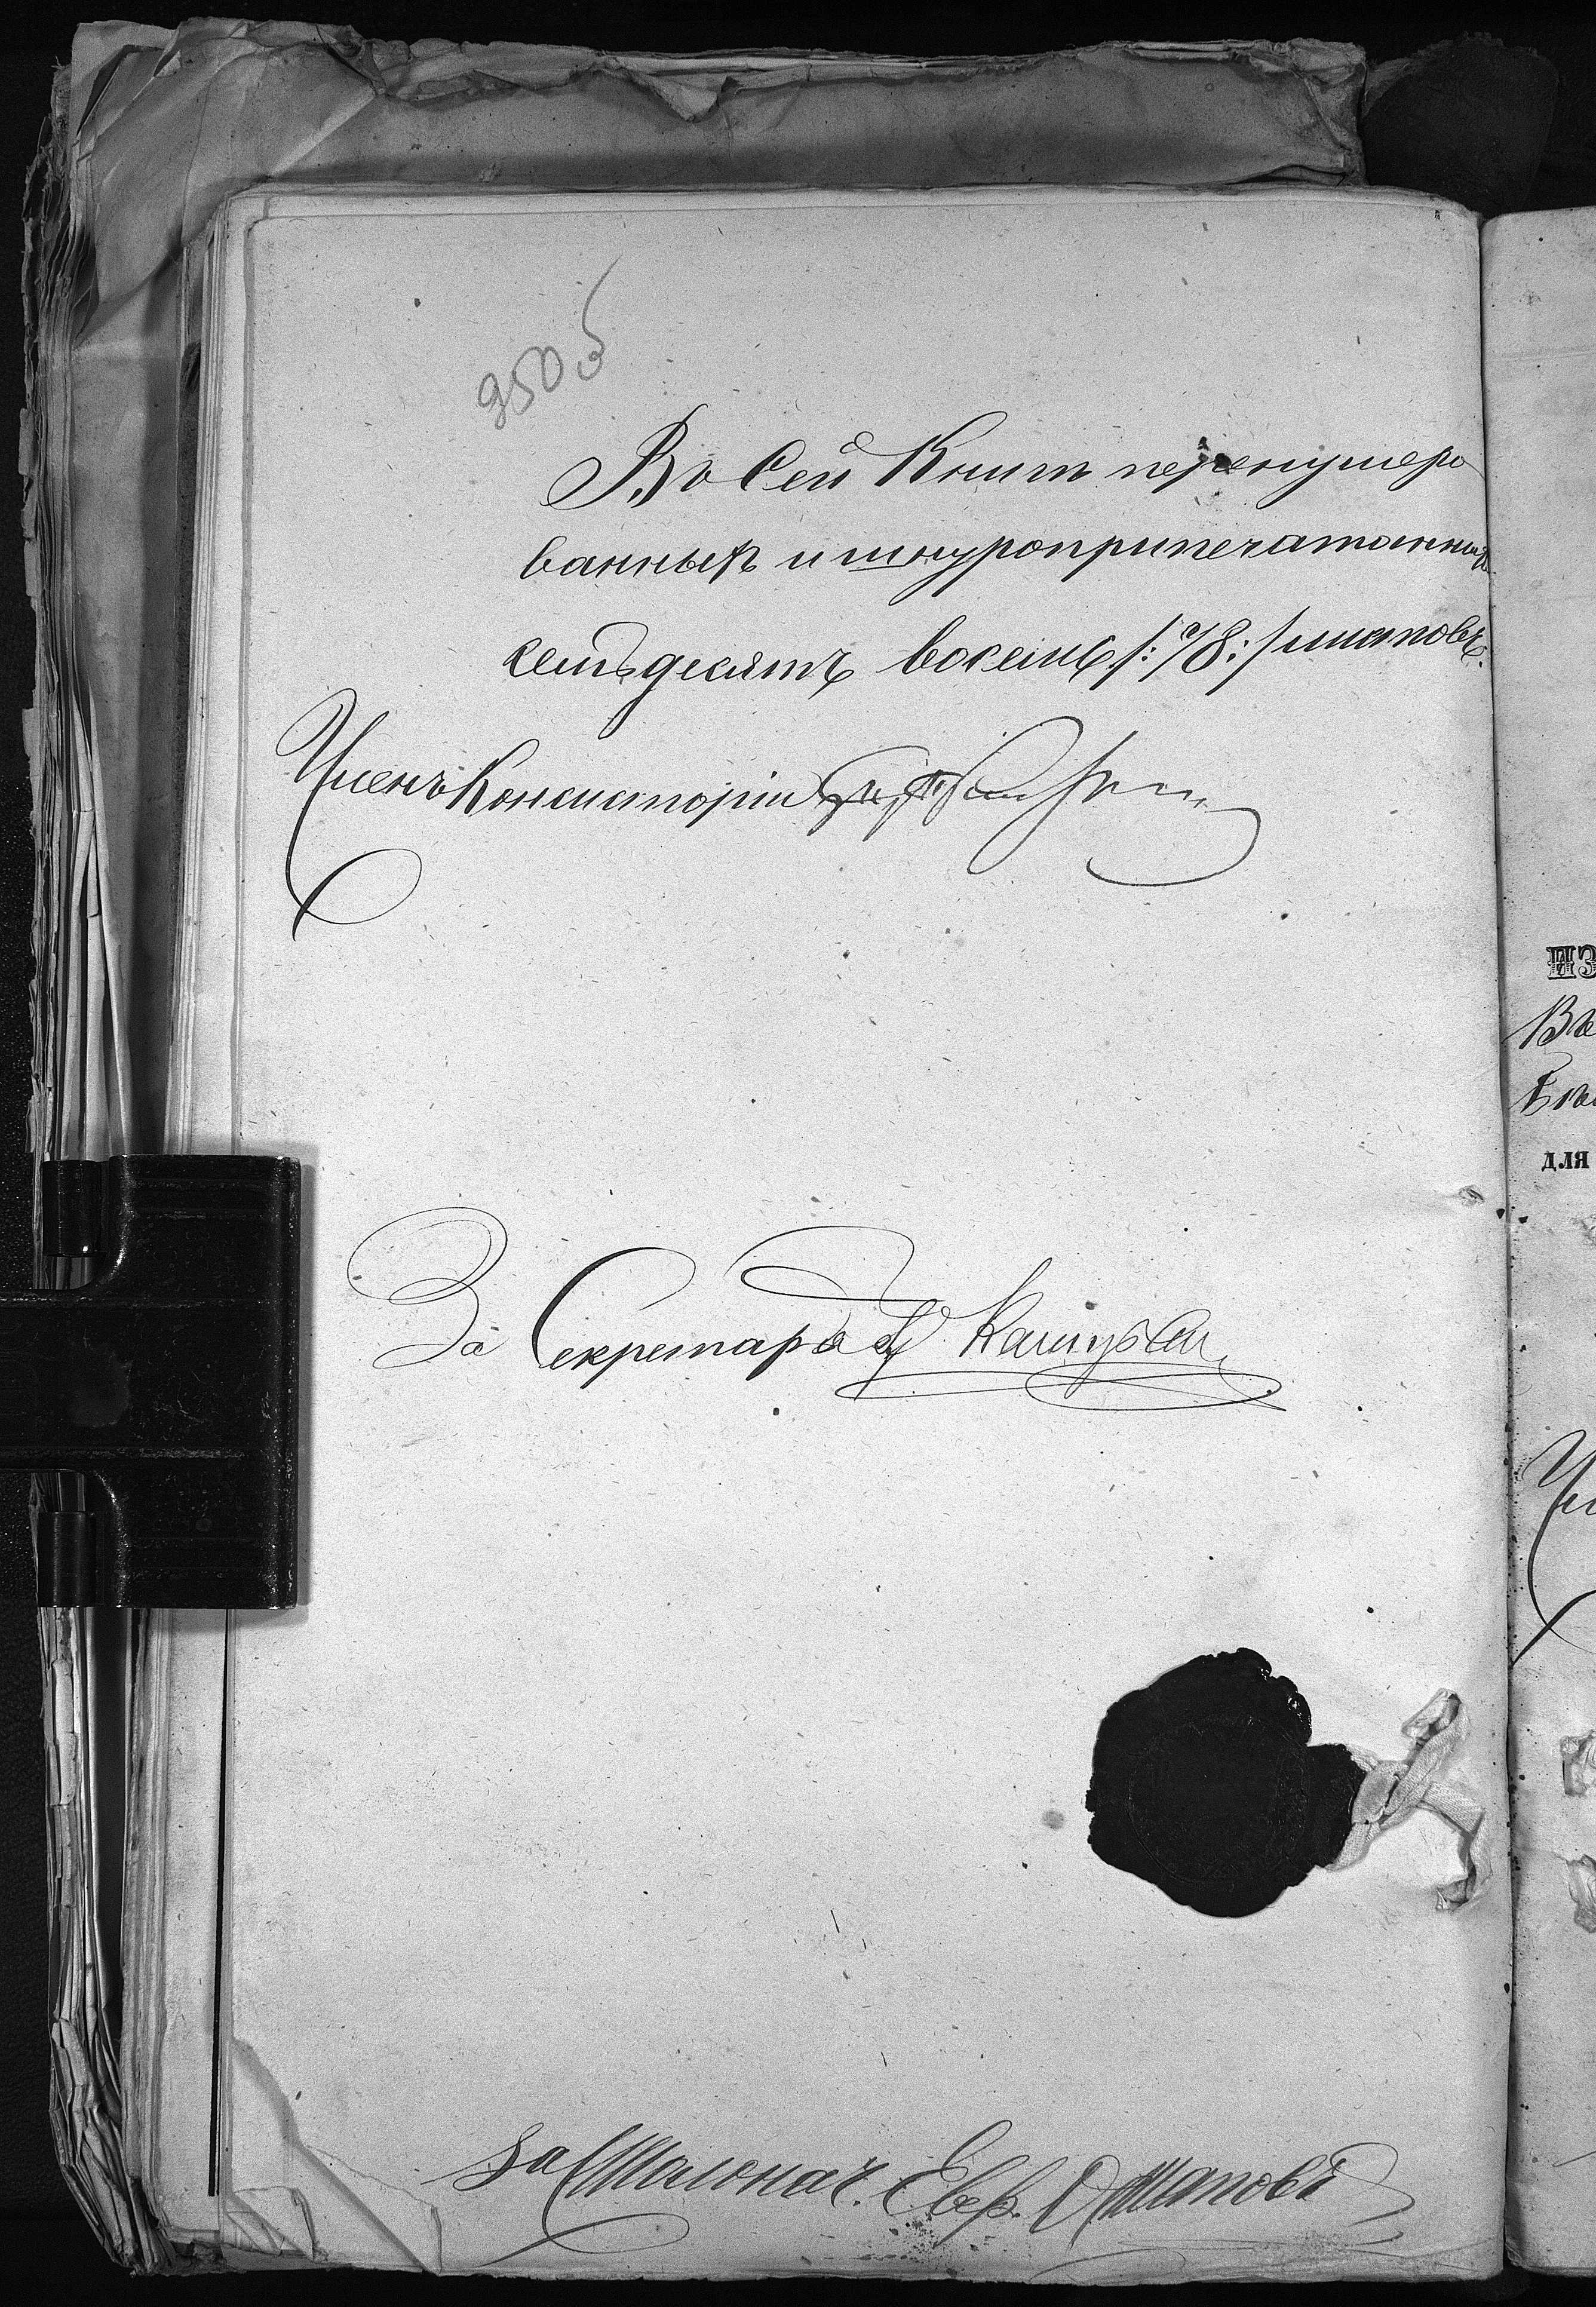 950 об
Въ Сей Книгѣ перенумеро
ванныхъ и шнуроприпечатанныхъ
семьдесятъ восемь /:78:/ листовъ.
Членъ Консисторіи
За Секретаря
За Столонач. Евр. Остаповъ
ИЗ
Въ
ДЛЯ